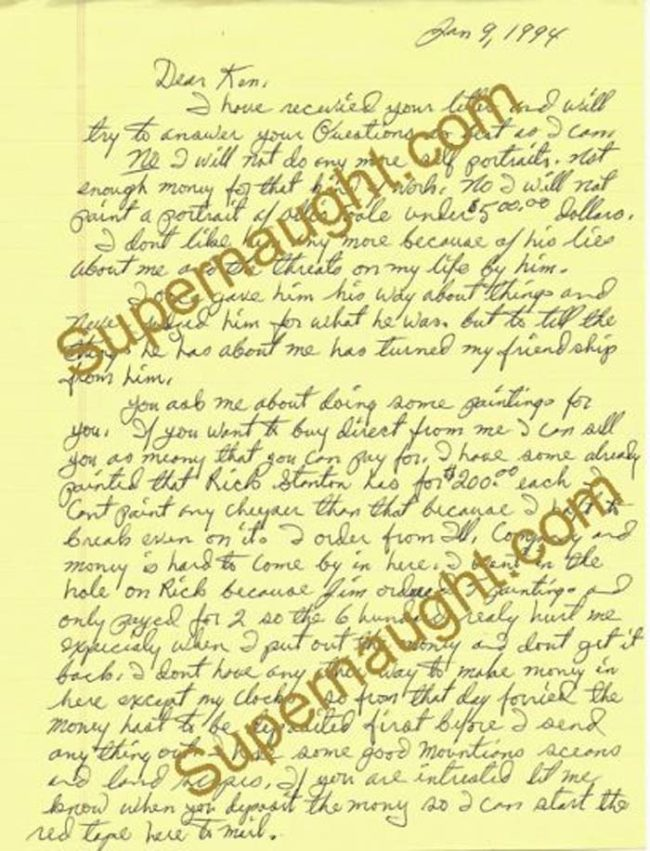 Jan 9, 1994
Dear Ken,
I have recuried your letter and will
try to answer your Questions as best as I can.
No I will not do any more self portraits. not
enough money for that kind of work. No I will not
paint a portrait of under $500.00 Dollars.
I dont like him any more because of his lies
about me and the threats on my life by him.
I gave him his way about things and
Never him for what he was. but to tell the
things he has about me has turned my friendship
from him.
you ask me about doing some paintings for
you. If you want to buy direct from me I can sell
you as meony that you can pay for. I have some already
painted that Rick Stanton has for $200.00 each I
Cant paint any cheyper than that because I have to
break even on it. I order from Ill. Company and
money is hard to come by in here. I went in the
hole on Rick because Jim paintings and
only payed for 2 so the 6 hundred realy hurt me
expecialy when I put out the money and dont get it
back. I dont have any other way to make money in
here except my clocks. so from that day forried the
money hast to be first before I send
any thing out. I have some good mountions sceans
and land . If you are intrested let me
know when you deposit the mony so I can start the
red tape here to mail.
Supernaught.com
Supernaught.com